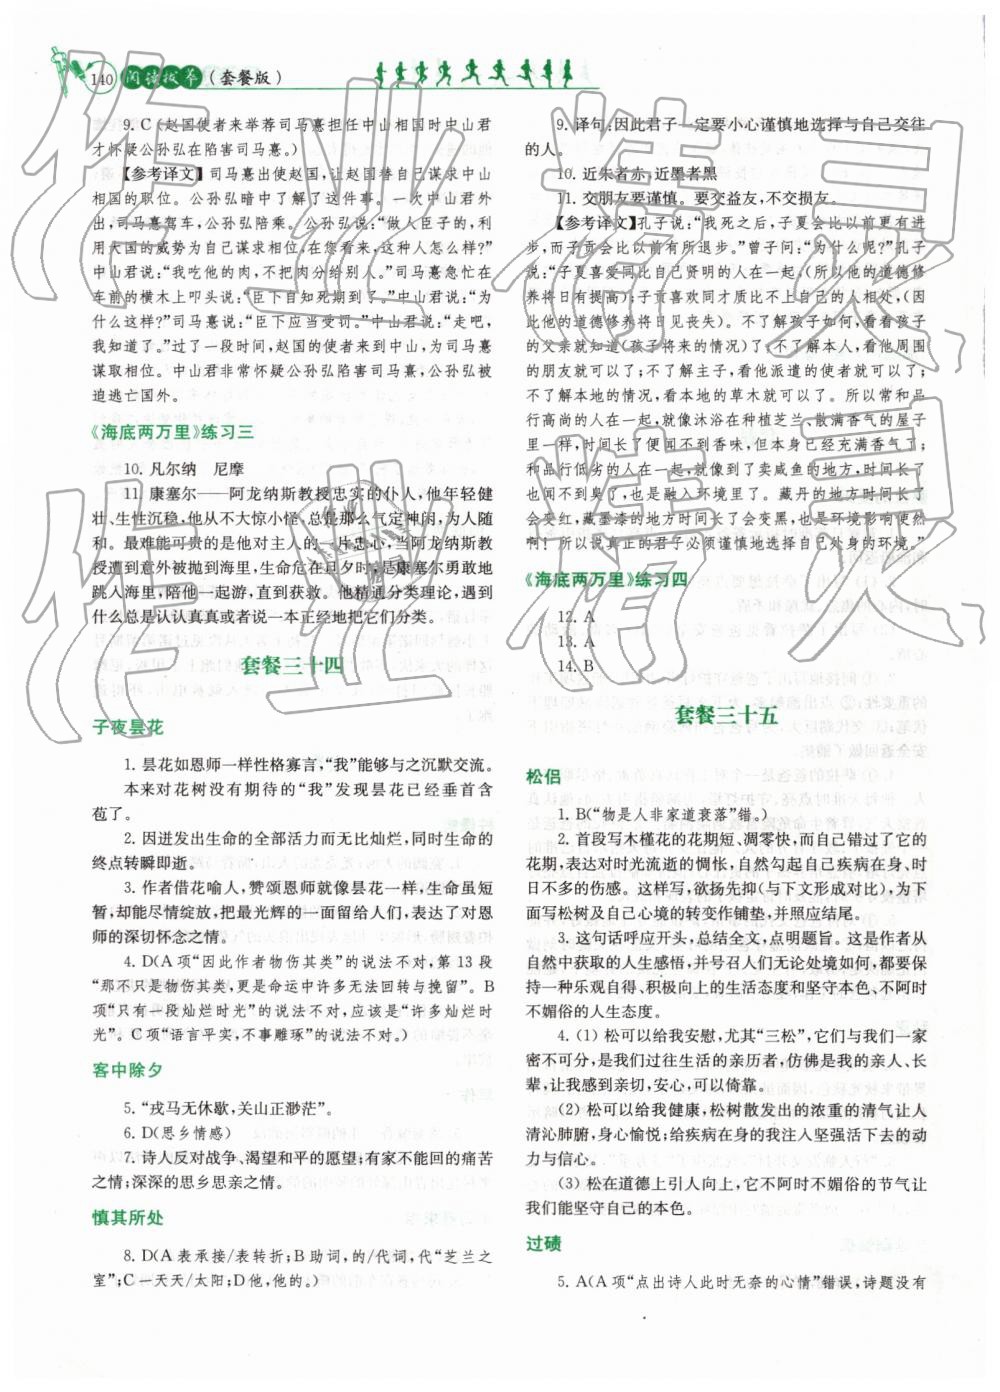 140 阅读拔萃（套餐版）
9. C（赵国使者来举荐司马憙担任中山相国时中山君
才怀疑公孙弘在陷害司马憙。）
【参考译文】司马憙出使赵国，让赵国替自己谋求中山
相国的职位。公孙弘暗中了解了这件事。一次中山君外
出，司马憙驾车，公孙弘陪乘。公孙弘说：“做人臣子的，利
用大国的威势为自己谋求相位，在您看来，这种人怎么样？”
中山君说：“我吃他的肉，不把肉分给别人。”司马憙急忙在
车前的横木上叩头说：“臣下自知死期到了。”中山君说：“为
什么这样？”司马憙说：“臣下应当受罚。”中山君说：“走吧，
我知道了。”过了一段时间，赵国的使者来到中山，为司马憙
谋取相位。中山君非常怀疑公孙弘陷害司马憙，公孙弘被
迫逃亡国外。
《海底两万里》练习三
10. 凡尔纳 尼摩
11. 康塞尔——阿龙纳斯教授忠实的仆人，他年轻健
壮、生性沉稳，他从不大惊小怪，总是那么气定神闲，为人随
和。最难能可贵的是他对主人的一片忠心，当阿龙纳斯教
授遭到意外被抛到海里，生命危在旦夕时，是康塞尔勇敢地
跳入海里，陪他一起游，直到获救。他精通分类理论，遇到
什么总是认认真真或者说一本正经地把它们分类。
套餐三十四
子夜昙花
1. 昙花如恩师一样性格寡言，“我”能够与之沉默交流。
本来对花树没有期待的“我”发现昙花已经垂首含
苞了。
2. 因迸发出生命的全部活力而无比灿烂，同时生命的
终点转瞬即逝。
3. 作者借花喻人，赞颂恩师就像昙花一样，生命虽短
暂，却能尽情绽放，把最光辉的一面留给人们，表达了对恩
师的深切怀念之情。
4. D（A项“因此作者物伤其类”的说法不对，第13段
“那不只是物伤其类，更是命运中许多无法回转与挽留”。B
项“只有一段灿烂时光”的说法不对，应该是“许多灿烂时
光”。C项“语言平实，不事雕琢”的说法不对。）
客中除夕
5. “戎马无休歇，关山正渺茫”。
6. D（思乡情感）
7. 诗人反对战争、渴望和平的愿望；有家不能回的痛苦
之情；深深的思乡思亲之情。
慎其所处
8. D（A表承接/表转折；B助词，的/代词，代“芝兰之
室”；C一天天/太阳；D他，他的。）
9. 译句：因此君子一定要小心谨慎地选择与自己交往
的人。
10. 近朱者赤，近墨者黑
11. 交朋友要谨慎。要交益友，不交损友。
【参考译文】孔子说：“我死之后，子夏会比以前更有进
步，而子贡会比以前有所退步。”曾子问：“为什么呢？”孔子
说：“子夏喜爱同比自己贤明的人在一起，（所以他的道德修
养将日有提高）；子贡喜欢同才质比不上自己的人相处，（因
此他的道德修养将日见丧失）。不了解孩子如何，看看孩子
的父亲就知道（孩子将来的情况）了；不了解本人，看他周围
的朋友就可以了；不了解主子，看他派遣的使者就可以了；
不了解本地的情况，看本地的草木就可以了。所以常和品
行高尚的人在一起，就像沐浴在种植芝兰、散满香气的屋子
里一样，时间长了便闻不到香味，但本身已经充满香气了；
和品行低劣的人在一起，就像到了卖咸鱼的地方，时间长了
也闻不到臭了，也是融入环境里了。藏丹的地方时间长了
会变红，藏墨漆的地方时间长了会变黑，也是环境影响使然
啊！所以说真正的君子必须谨慎地选择自己处身的环境。”
《海底两万里》练习四
12. A
13. A
14. B
套餐三十五
松侣
1. B（“物是人非家道衰落”错。）
2. 首段写木槿花的花期短，凋零快，而自己错过了它的
花期，表达对时光流逝的惆怅，自然勾起自己疾病在身、时
日不多的伤感。这样写，欲扬先抑（与下文形成对比），为下
面写松树及自己心境的转变作铺垫，并照应结尾。
3. 这句话呼应开头，总结全文，点明题旨。这是作者从
自然中获取的人生感悟，并号召人们无论处境如何，都要保
持一种乐观自得、积极向上的生活态度和坚守本色、不阿时
不媚俗的人生态度。
4. （1）松可以给我安慰，尤其“三松”，它们与我们一家
密不可分，是我们过往生活的亲历者，仿佛是我的亲人、长
辈，让我感到亲切，安心，可以倚靠。
（2）松可以给我健康，松树散发出的浓重的清气让人
清沁肺腑，身心愉悦；给疾病在身的我注入坚强活下去的动
力与信心。
（3）松在道德上引人向上，它不阿时不媚俗的节气让
我们能坚守自己的本色。
过碛
5. A（A项“点出诗人此时无奈的心情”错误，诗题没有